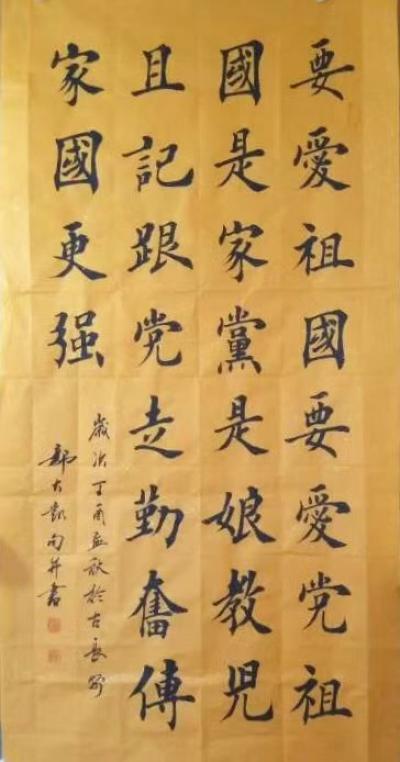 要愛祖國要愛党祖
國是家黨是娘教児
且記跟党走勤奮傳
家國更强
歲次丁酉孟秋於古長安
大凱句并書